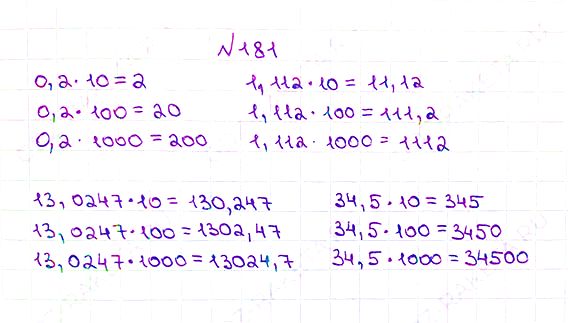 №181
0,2·10=2
0,2·100=20
0,2·1000=200
1,112·10=11,12
1,112·100=111,2
1,112·1000=1112
13,0247·10=130,247
13,0247·100=1302,47
13,0247·1000=13024,7
34,5·10=345
34,5·100=3450
34,5·1000=34500